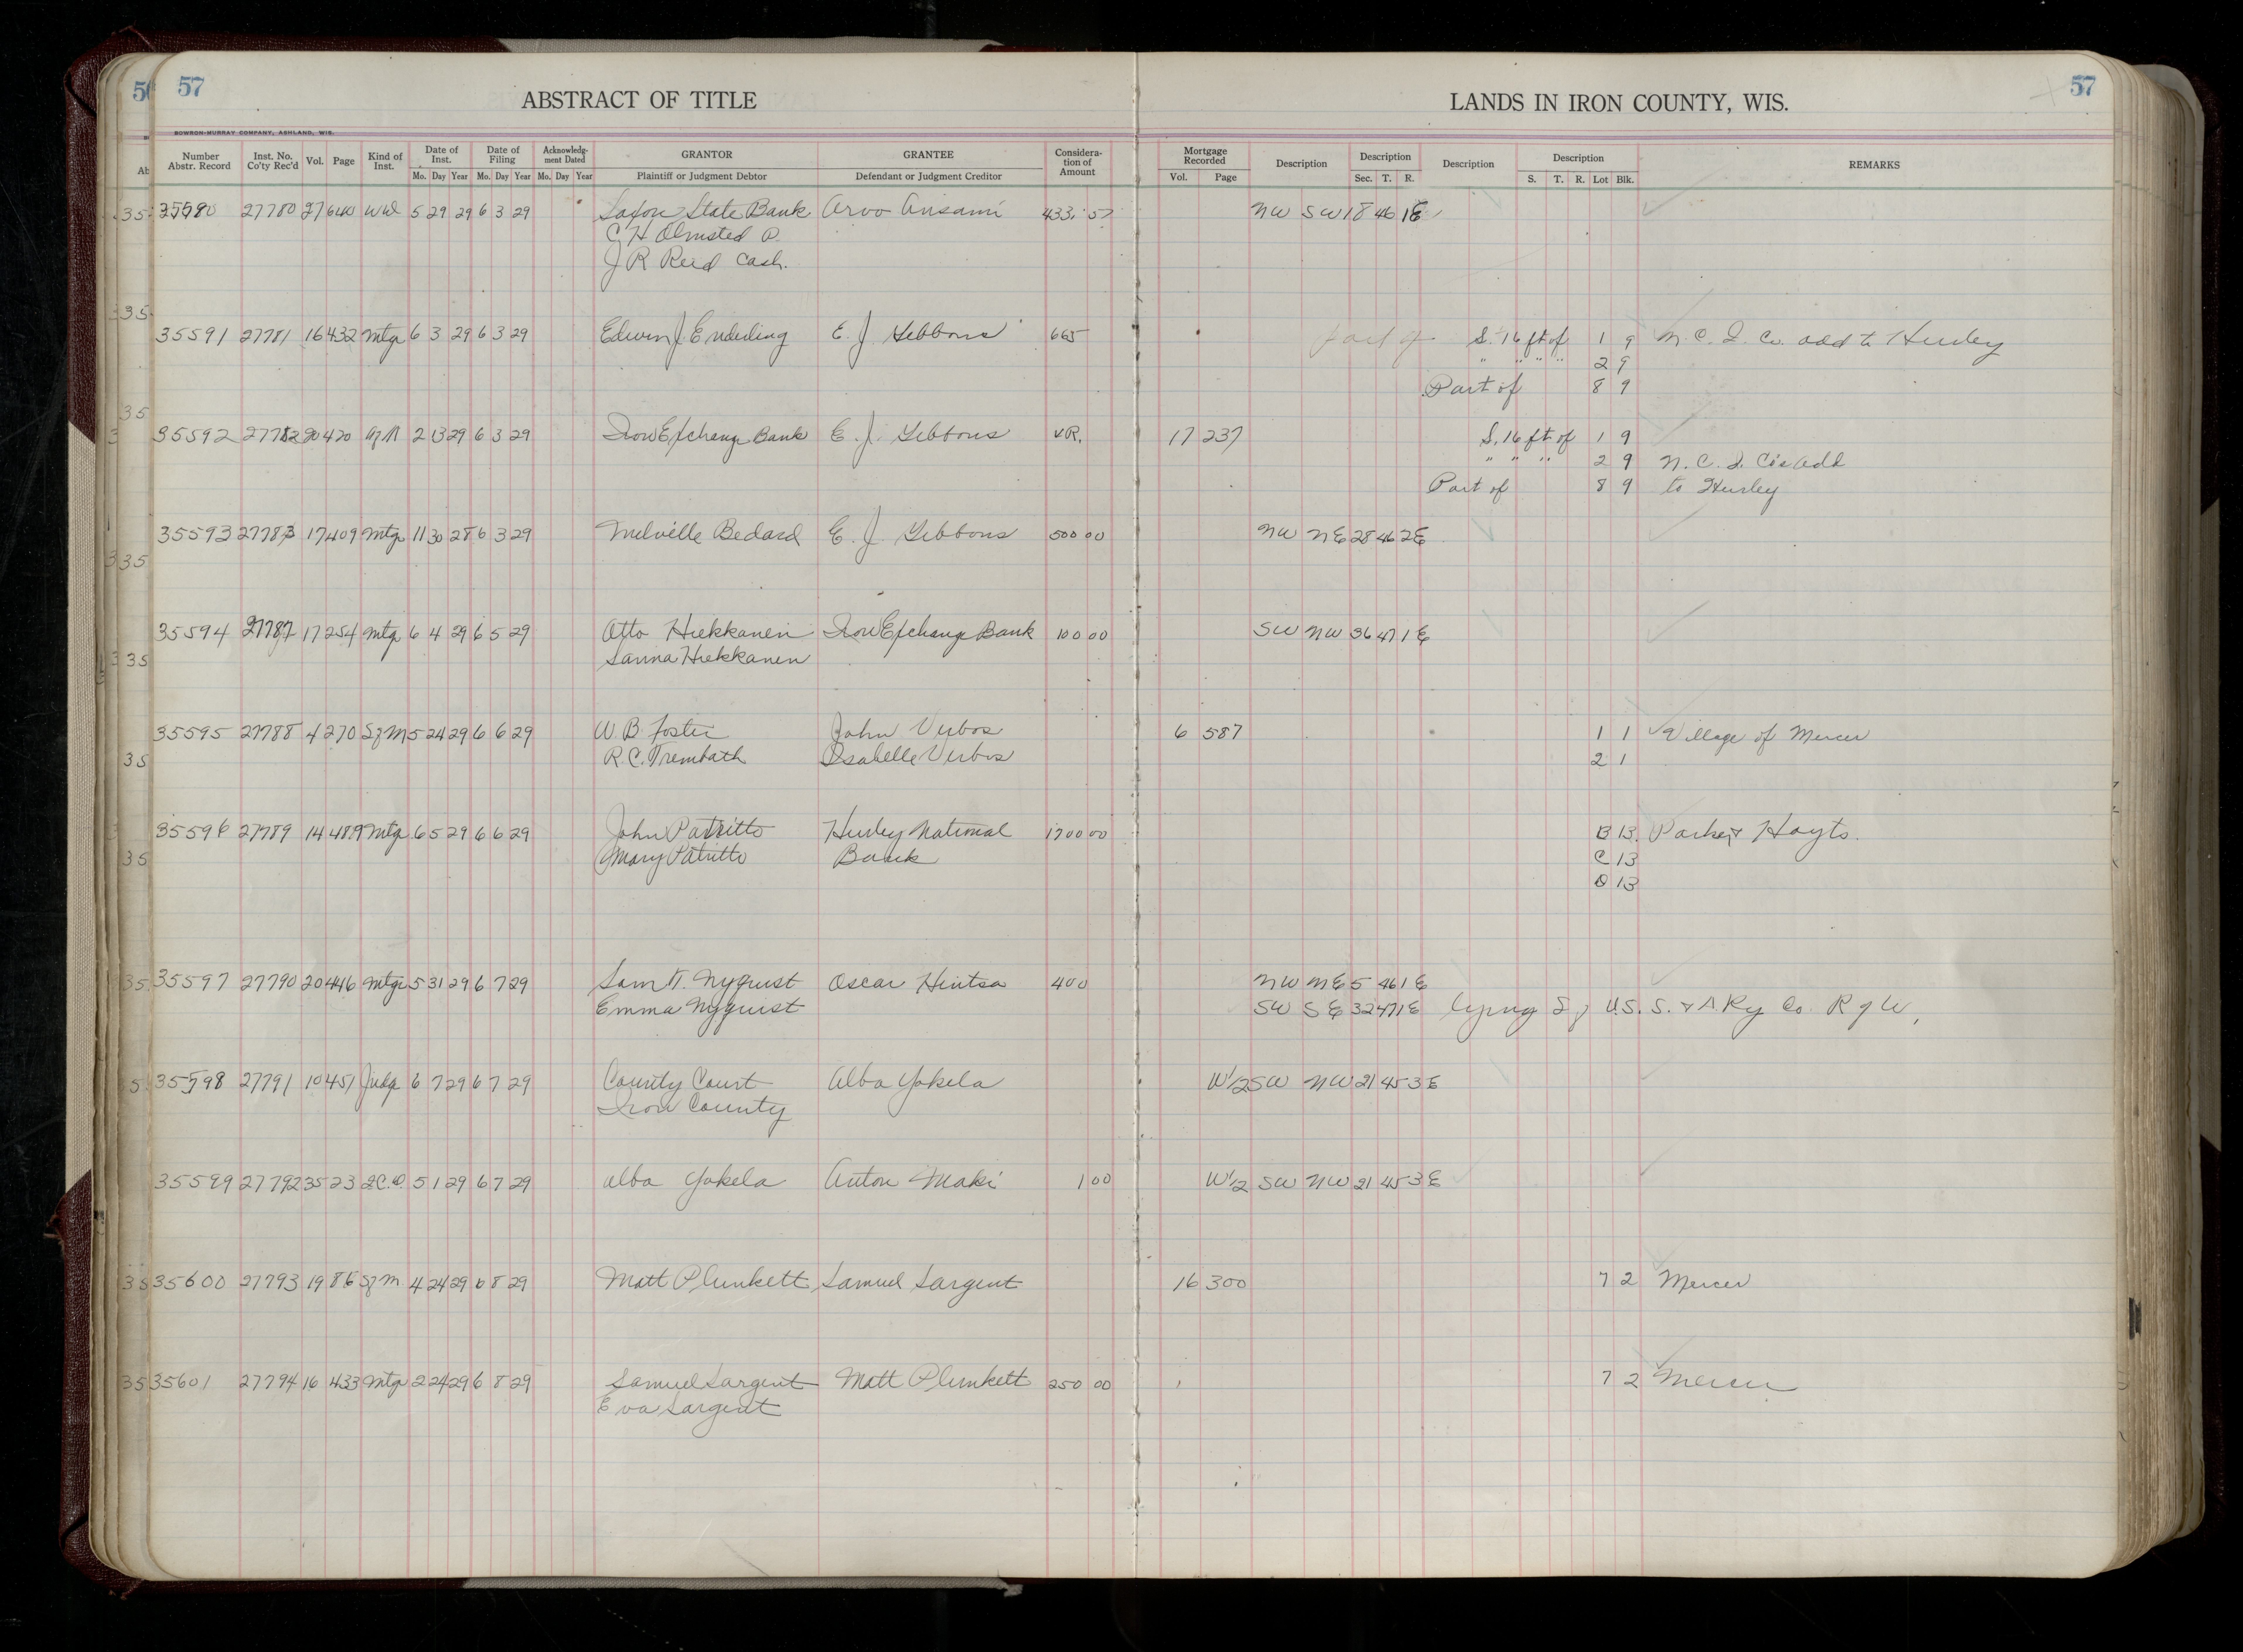 57
57
ABSTRACT OF TITLE
LANDS IN IRON COUNTY, WIS.
BOWRON-MURRAY COMPANY, ASHLAND, WIS.
Number Abstr. Record Inst. No. Co'ty Rec'd Vol. Page Kind of Inst. Date of Inst. Date of Filing Acknowledg-ment Dated GRANTOR GRANTEE Considera-tion of Amount Mortgage Recorded Description Description Description Description REMARKS
Mo. Day Year Mo. Day Year Mo. Day Year Plaintiff or Judgment Debtor Defendant or Judgment Creditor Vol. Page Sec. T. R. S. T. R. Lot Blk.
27780 27 640 WD 5 29 29 6 3 29 Saxon State Bank Arvo Ansami 433 57 NW SW 18 46 1E
C H Olmsted P.
J R Reid Cash.
35591 27781 16 432 Mtg 6 3 29 6 3 29 Edwin J. Enderling E. J. Gibbons 665 part of S. 16 ft of 1 9 N. C. I. Co. add to Hurley
" " " " 2 9
Part of 8 9
35592 27782 20 420 2 13 29 6 3 29 Iron Exchange Bank E. J. Gibbons VR. 17 237 S. 16 ft of 1 9
" " " 2 9 N. C. I. Co's Add
Part of 8 9 to Hurley
35593 27783 17 409 Mtg 11 30 28 6 3 29 Melville Bedard E. J. Gibbons 500 00 NW NE 28 46 2E
35594 27787 17 254 Mtg 6 4 29 6 5 29 Otto Hiekkanen Iron Exchange Bank 100 00 SW NW 36 47 1E
Sanna Hiekkanen
35595 27788 4 270 Sg M 5 24 29 6 6 29 W. B. Foster John Verbos 6 587 1 1 Village of Mercer
R. C. Trembath Isabelle Verbos 2 1
35596 27789 14 489 Mtg 6 5 29 6 6 29 John Patritto Hurley National 1700 00 B 13 Parker & Hoyts.
Mary Patritto Bank C 13
D 13
35597 27790 20 446 Mtg 5 31 29 6 7 29 Nyquist Oscar Hintsa 400 NW NE 5 46 1E
Emma Nyquist SW SE 32 47 1E lying S of S. & A Ry Co. R of W.
35598 27791 10 451 Judg 6 7 29 6 7 29 County Court Alba Yokela W 1/2 SW NW 21 45 3E
Iron County
35599 27792 35 23 Q.C.D. 5 1 29 6 7 29 Alba Yokela Anton Maki 1 00 W 1/2 SW NW 21 45 3E
35600 27793 19 86 Sg M 4 24 29 6 8 29 Matt Plunkett Samuel Sargent 16 300 7 2 Mercer
35601 27794 16 433 Mtg 2 24 29 6 8 29 Samuel Sargent Matt Plunkett 250 00 7 2 Mercer
Eva Sargent